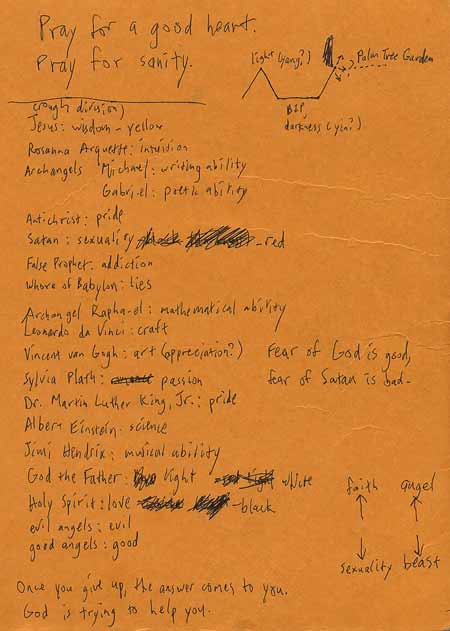 Pray for a good heart.
Pray for sanity.
light (yang?)
Palm Tree Garden
BIP
darkness (yin?)
(rough division)
Jesus: wisdom - yellow
Rosanna Arquette: intuition
Archangels Michael: writing ability
Gabri-el: poetic ability
Antichrist: pride
Satan: sexuality - red
False Prophet: addiction
Whore of Babylon: lies
Archangel Rapha-el: mathematical ability
Leonardo da Vinci: craft
Vincent van Gogh: art (appreciation?)
Fear of God is good,
fear of Satan is bad.
Sylvia Plath: passion
Dr. Martin Luther King, Jr.: pride
Albert Einstein: science
Jimi Hendrix: musical ability
God the Father: light white
Holy Spirit: love - black
evil angels: evil
good angels: good
faith angel
sexuality beast
Once you give up, the answer comes to you.
God is trying to help you.